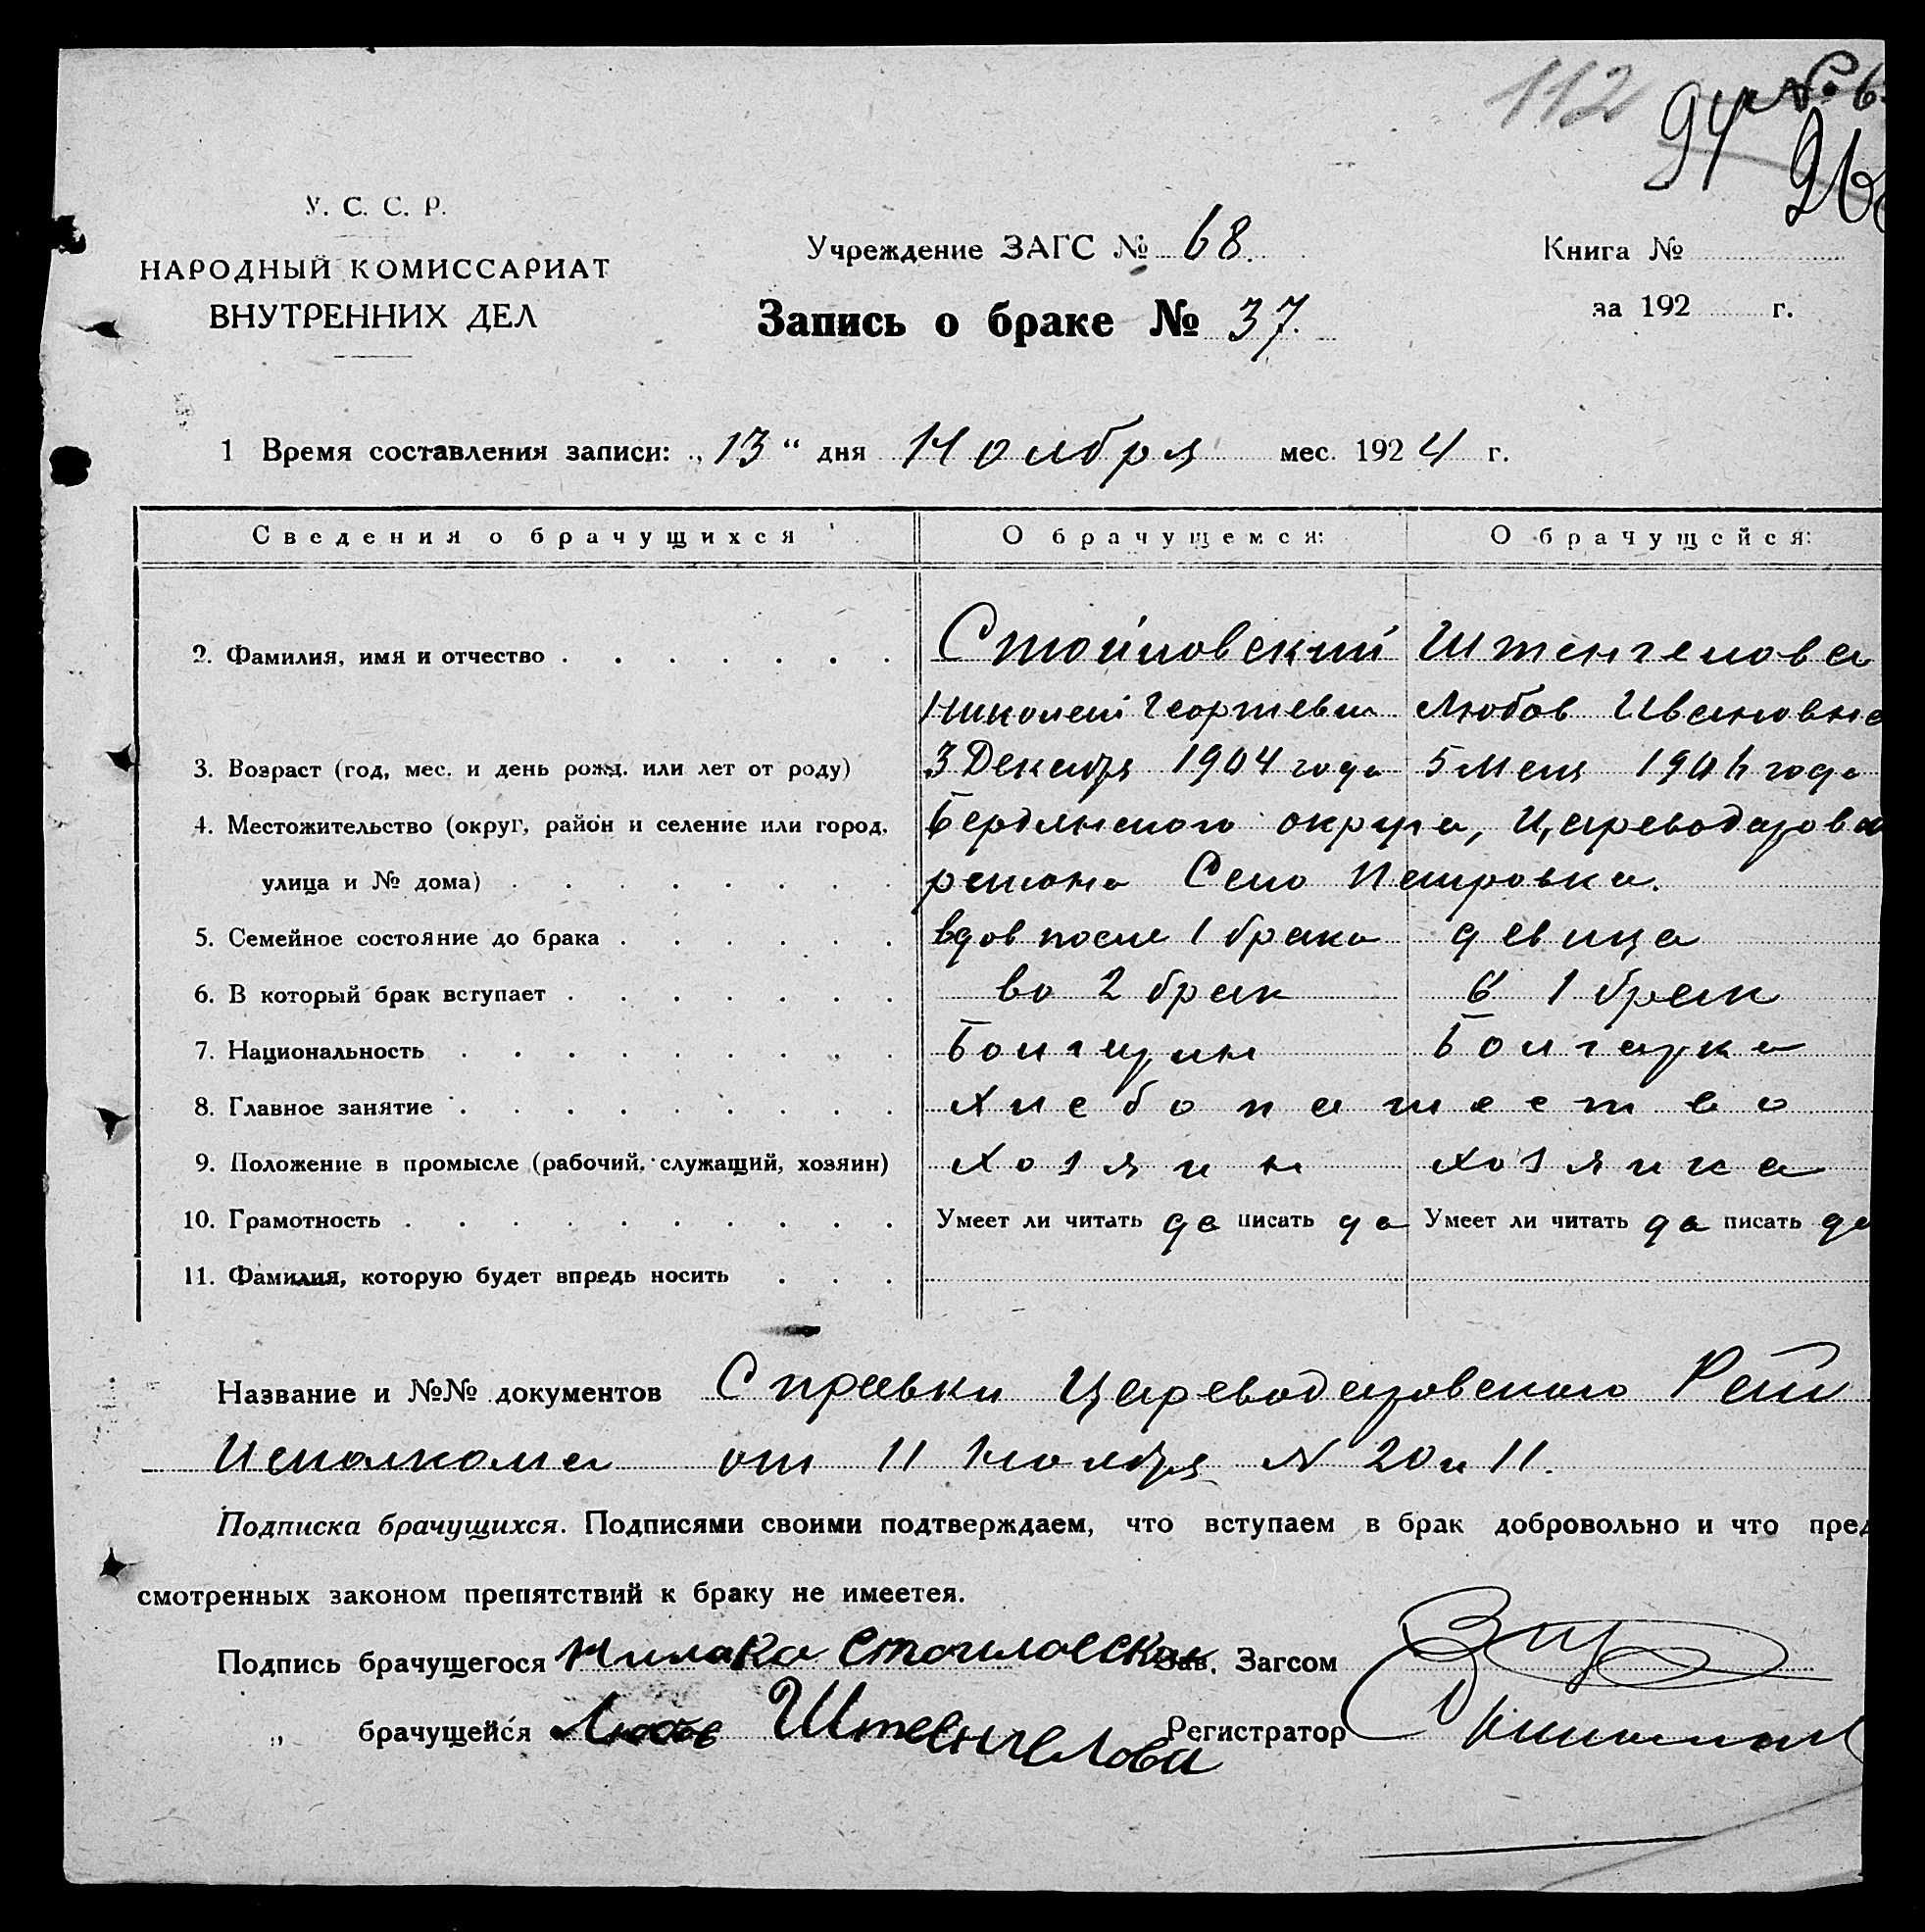 112
94 № 6
У. С. С. Р.
НАРОДНЫЙ КОМИССАРИАТ
ВНУТРЕННИХ ДЕЛ
Учреждение ЗАГС № 68.
Запись о браке № 37.
Книга №
за 192 г.
1 Время составления записи: „13“ дня Ноября мес. 1924 г.
Сведения о брачущихся О брачущемся: О брачущейся:
2. Фамилия, имя и отчество Стоиловский Штенгелова
Николай Георгиевич Любов Ивановна
3. Возраст (год, мес. и день рожд. или лет от роду) 3 Декабря 1904 года 5 Мая 1906 года
4. Местожительство (округ, район и селение или город, Бердянского округа, Цареводаровск
улица и № дома) района Село Петровка.
5. Семейное состояние до брака вдов после 1 брака девица
6. В который брак вступает во 2 брак в 1 брак
7. Национальность Болгарин Болгарка
8. Главное занятие Хлебопашество
9. Положение в промысле (рабочий, служащий, хозяин) Хозяин Хозяика
10. Грамотность Умеет ли читать да писать да Умеет ли читать да писать да
11. Фамилия, которую будет впредь носить
Название и №№ документов Справки Цареводаровского Рай
Исполкома от 11 Ноября N 20 и 11.
Подписка брачущихся. Подписями своими подтверждаем, что вступаем в брак добровольно и что пред
смотренных законом препятствий к браку не имеетея.
Подпись брачущегося Стоиловски Зав. Загсом
„ брачущейся Любов Штенгелова Регистратор